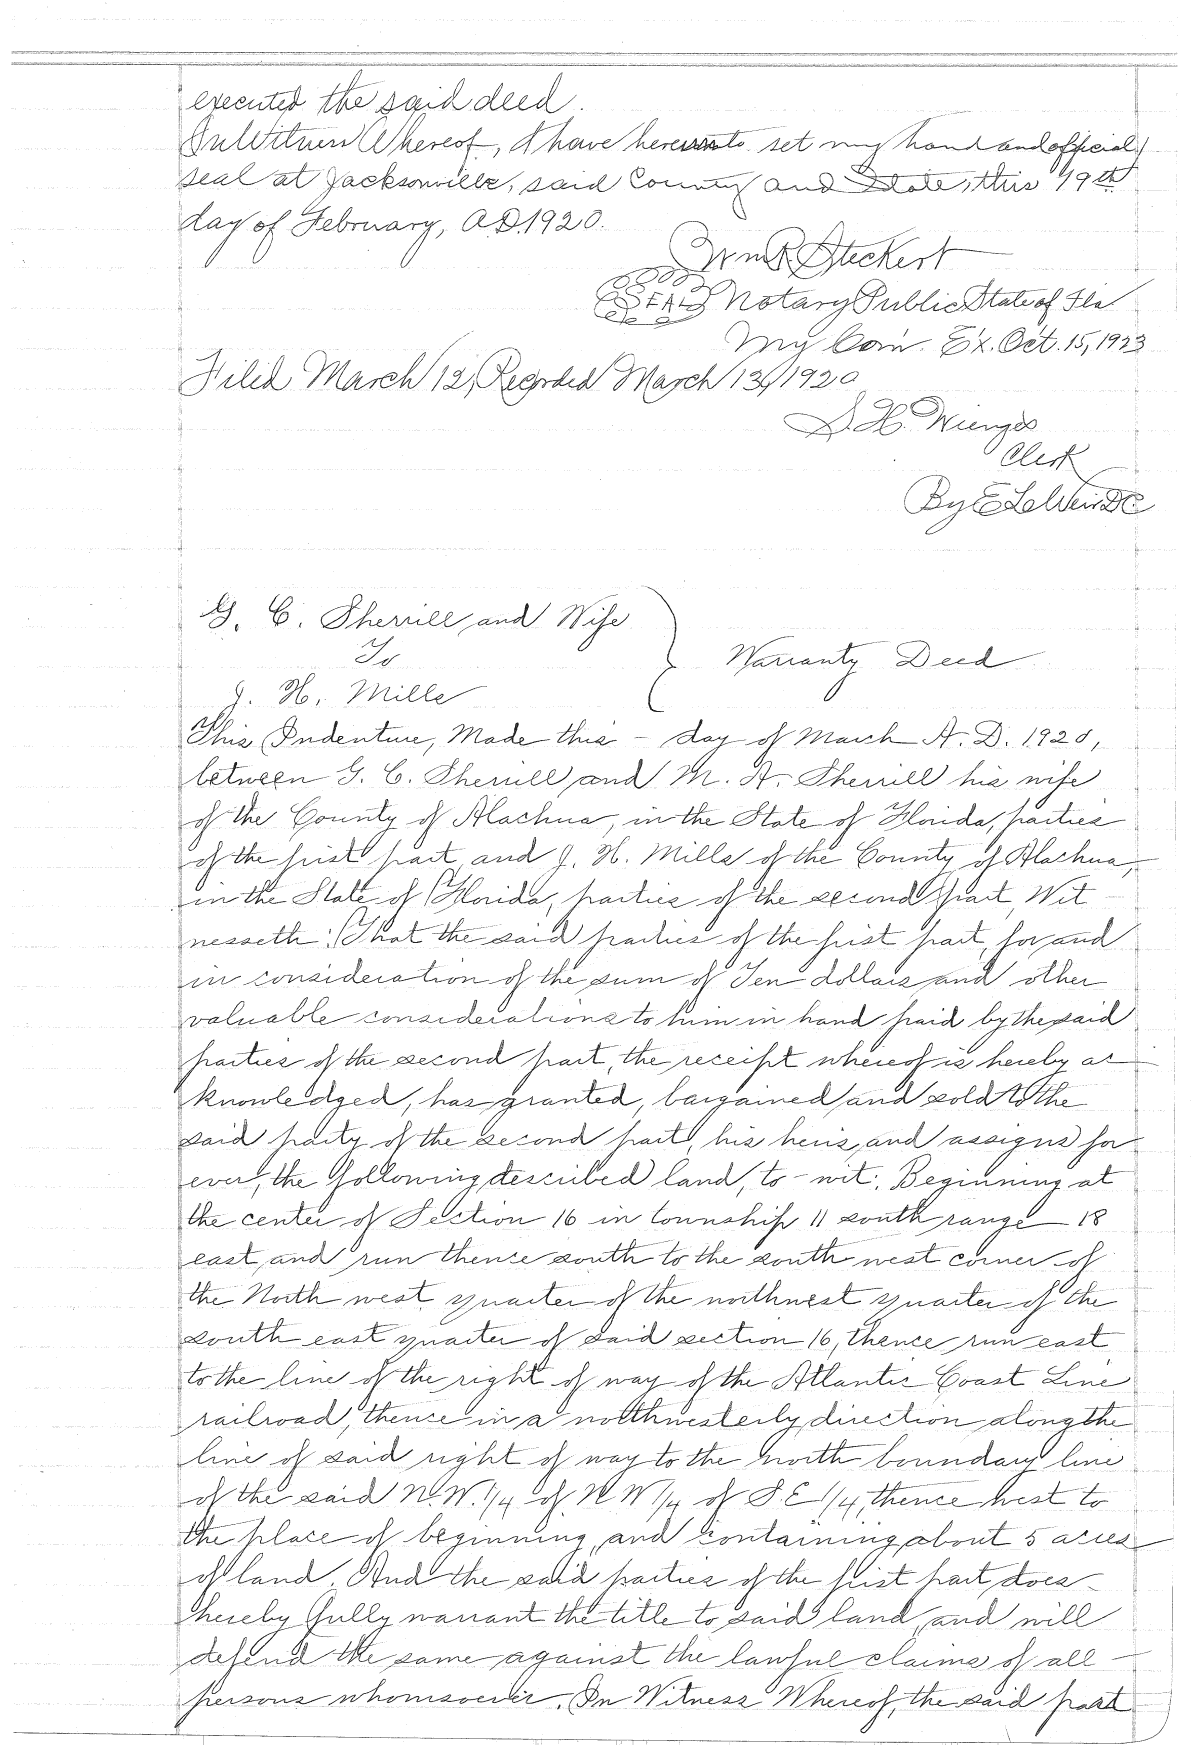 executed the said deed.
In Witness Whereof, I have hereunto set my hand and official
seal at Jacksonville, said County and State, this 19th
day of February, A.D. 1920.
Wm R Steckert
SEAL Notary Public State of Fla
My Com. Ex. Oct. 15, 1923
Filed March 12, Recorded March 13, 1920
S. H. Wienges
Clerk
By E DC
G. C. Sherrill and Wife
To
J. H. Mills
Warranty Deed
This Indenture, Made this – day of March A. D. 1920,
between G. C. Sherrill and M. A. Sherrill his wife
of the County of Alachua, in the State of Florida, parties
of the first part, and J. H. Mills of the County of Alachua,
in the State of Florida, parties of the second part, Wit
nesseth: That the said parties of the first part, for and
in consideration of the sum of Ten dollars and other
valuable considerations to him in hand paid by the said
parties of the second part, the receipt whereof is hereby ac
knowledged, has granted, bargained and sold to the
said party of the second part, his heirs, and assigns for
ever, the following described land, to-wit: Beginning at
the center of Section 16 in township 11 south, range 18
east, and run thence south to the south west corner of
the North west quarter of the northwest quarter of the
south east quarter of said section 16, thence run east
to the line of the right of way of the Atlantic Coast Line
railroad, thence in a northwesterly direction along the
line of said right of way to the north boundary line
of the said N.W. 1/4 of N W 1/4 of S E 1/4, thence west to
the place of beginning, and containing about 5 acres
of land. And the said parties of the first part, does
hereby fully warrant the title to said land, and will
defend the same against the lawful claims of all
persons whomsoever. In Witness Whereof, the said part